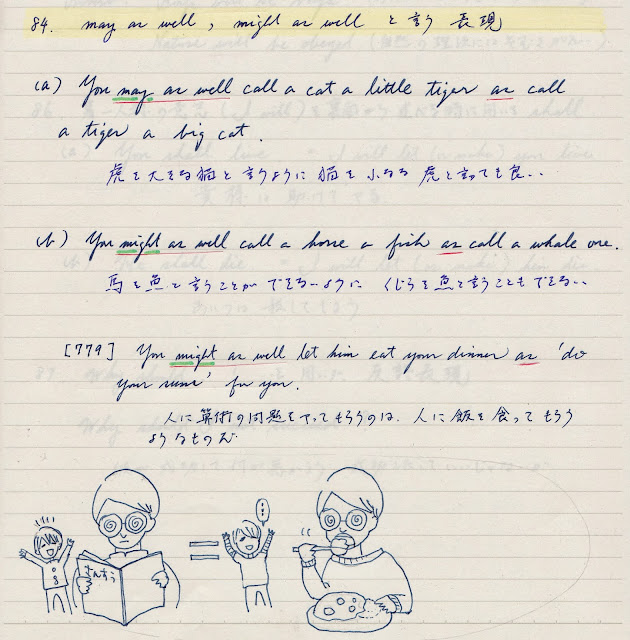 84. may as well, might as well と言う表現
(a) You may as well call a cat a little tiger as call
a tiger a big cat.
虎を大きな猫と言うように猫を小なる虎と言っても良い..
(b) You might as well call a horse a fish as call a whale one.
馬を魚と言うことができないように くじらを魚と言うこともできない..
[779] You might as well let him eat your dinner as 'do
your sums' for you.
人に算術の問題をやってもらうのは、人に飯を食ってもらう
ようなものだ
さんすう